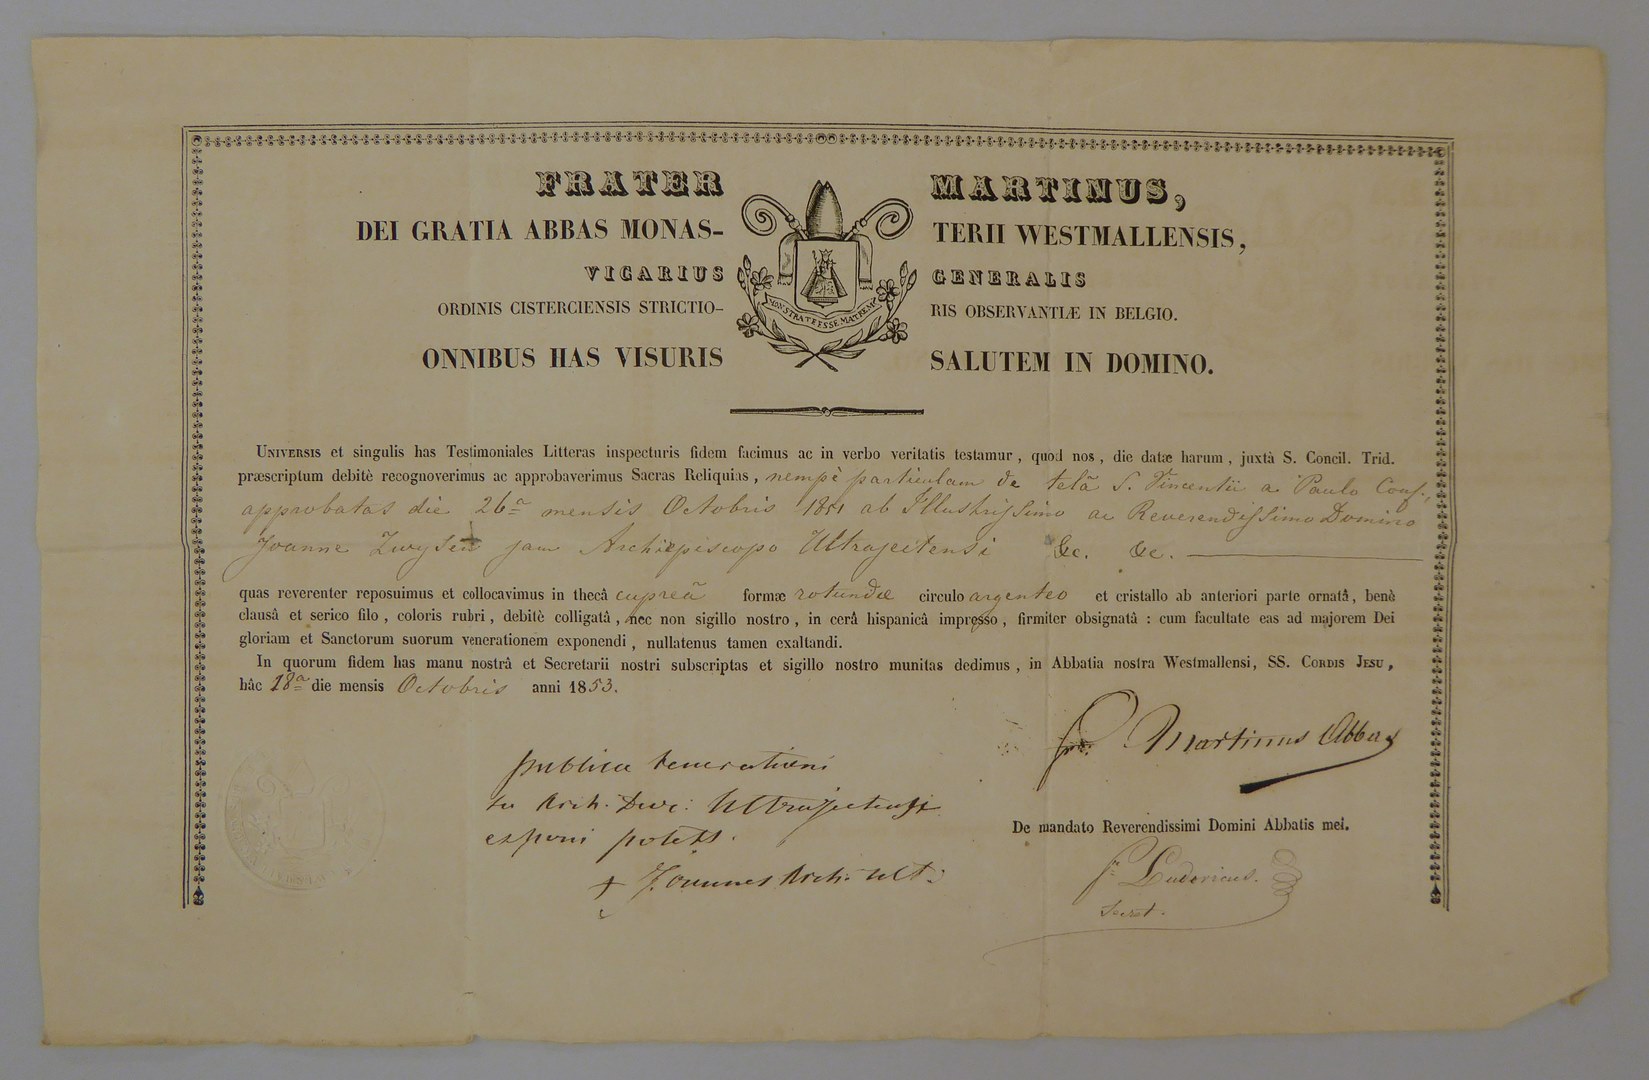 FRATER MARTINUS,
DEI GRATIA ABBAS MONAS- TERII WESTMALLENSIS,
VICARIUS GENERALIS
ORDINIS CISTERCIENSIS STRICTIO- RIS OBSERVANTIÆ IN BELGIO.
MONSTRA TE ESSE MATREM
ONNIBUS HAS VISURIS SALUTEM IN DOMINO.
Universis et singulis has Testimoniales Litteras inspecturis fidem facimus ac in verbo veritatis testamur, quod nos, die datæ harum, juxtà S. Concil. Trid.
præscriptum debitè recognoverimus ac approbaverimus Sacras Reliquias, nempè particulam de telâ S. Vincentii a Paulo Conf.,
approbatas die 26ª mensis Octobris 1851 ab Illustrissimo ac Reverendissimo Domino
Joanne Zwysen jam Archiepiscopo Ultrajectensi &c. &c.
quas reverenter reposuimus et collocavimus in thecâ cupreâ formæ rotundæ circulo argenteo et cristallo ab anteriori parte ornatâ, benè
clausâ et serico filo, coloris rubri, debitè colligatâ, nec non sigillo nostro, in cerâ hispanicâ impresso, firmiter obsignatâ : cum facultate eas ad majorem Dei
gloriam et Sanctorum suorum venerationem exponendi, nullatenus tamen exaltandi.
In quorum fidem has manu nostrâ et Secretarii nostri subscriptas et sigillo nostro munitas dedimus, in Abbatia nostra Westmallensi, SS. Cordis Jesu,
hâc 18ª die mensis Octobris anni 1853.
fr. Martinus Abbas
publicæ venerationi
in Arch. Diœc: Ultrajectensi
exponi potest.
+ Joannes Arch. Ult:
De mandato Reverendissimi Domini Abbatis mei.
fr. Ludovicus.
Secret.